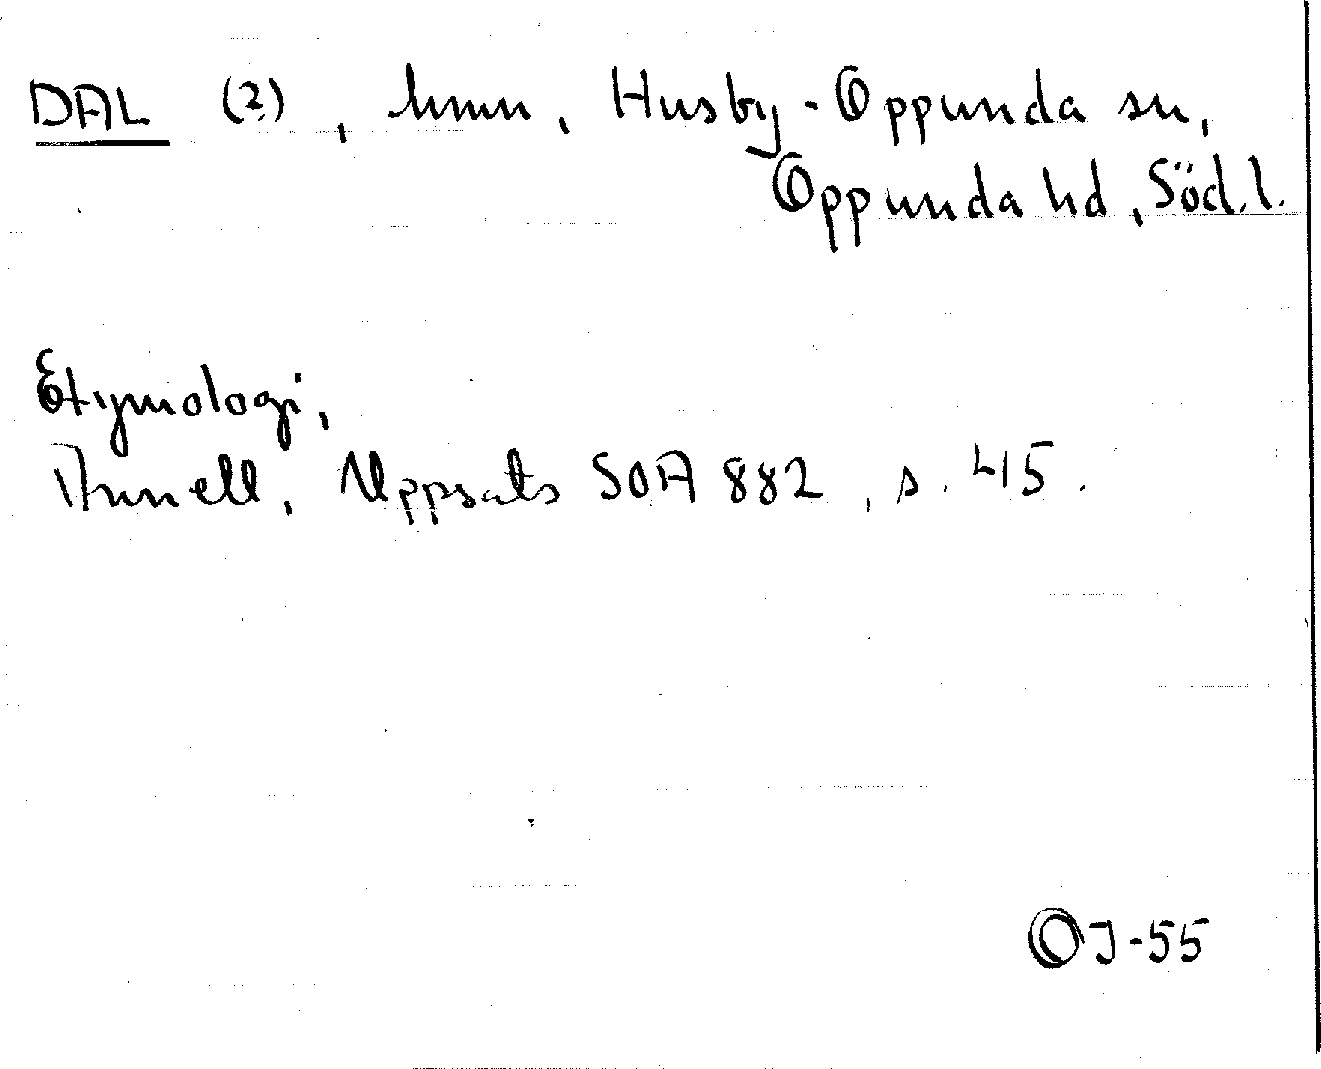 DAL (2), hmn, Husby-Oppunda sn,
Oppunda hd, Söd.l.
Etymologi,
Uppsats SOA 882, s. 45.
OJ-55